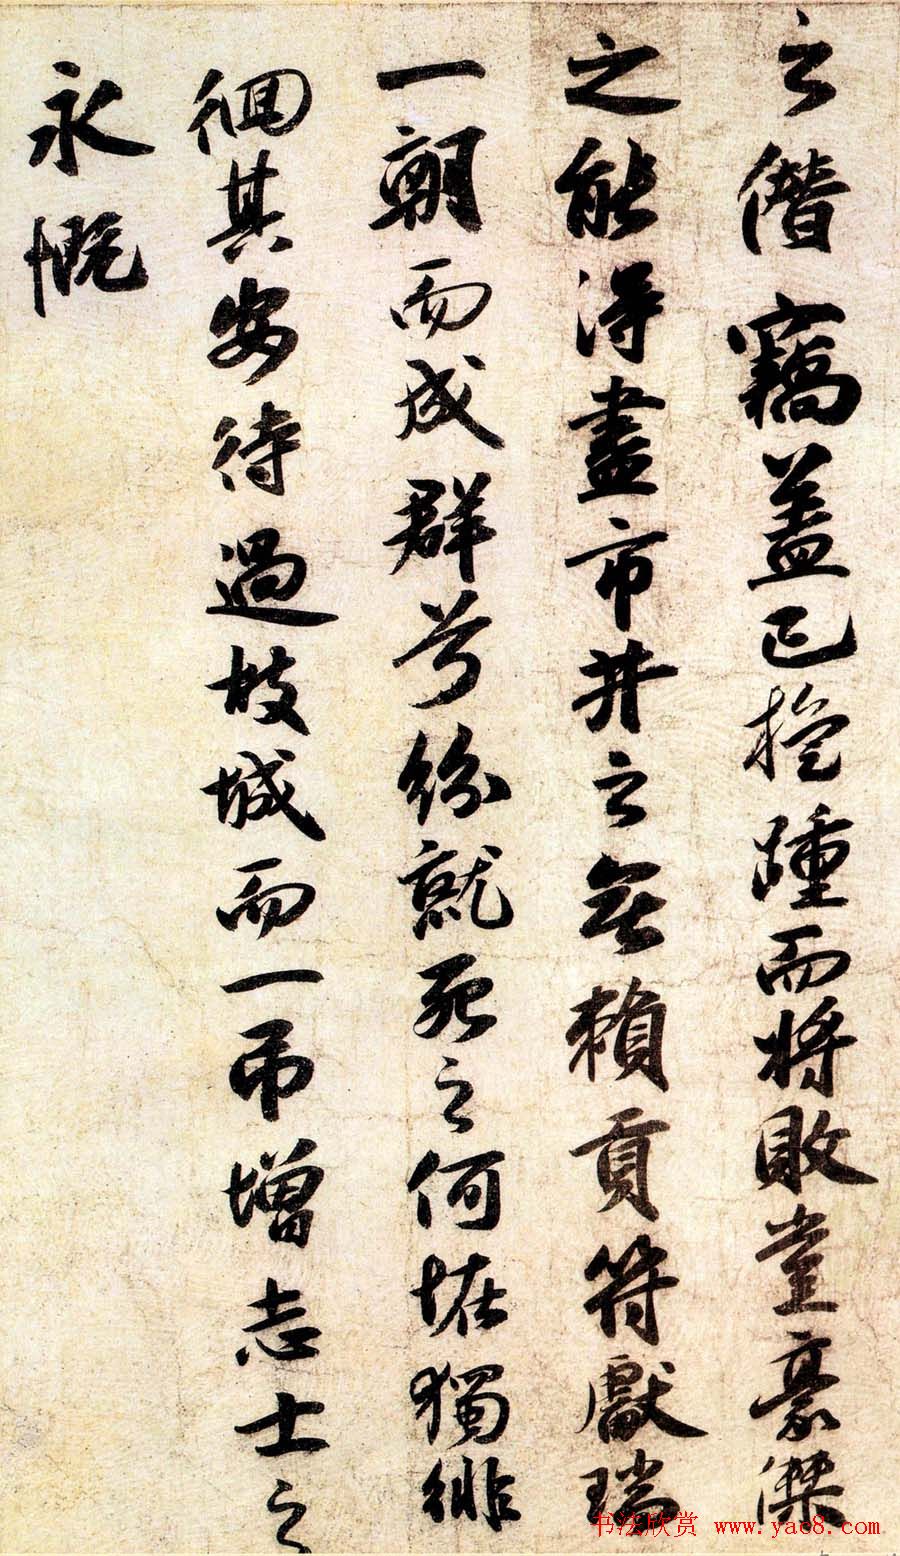 之僭竊蓋已旋踵而将敗豈豪傑
之能得盡市井之無賴貢符獻瑞
一朝而成群兮紛就死之何恠獨徘
徊其安待過故城而一吊增志士之
永慨
书法欣赏 www.yac8.com